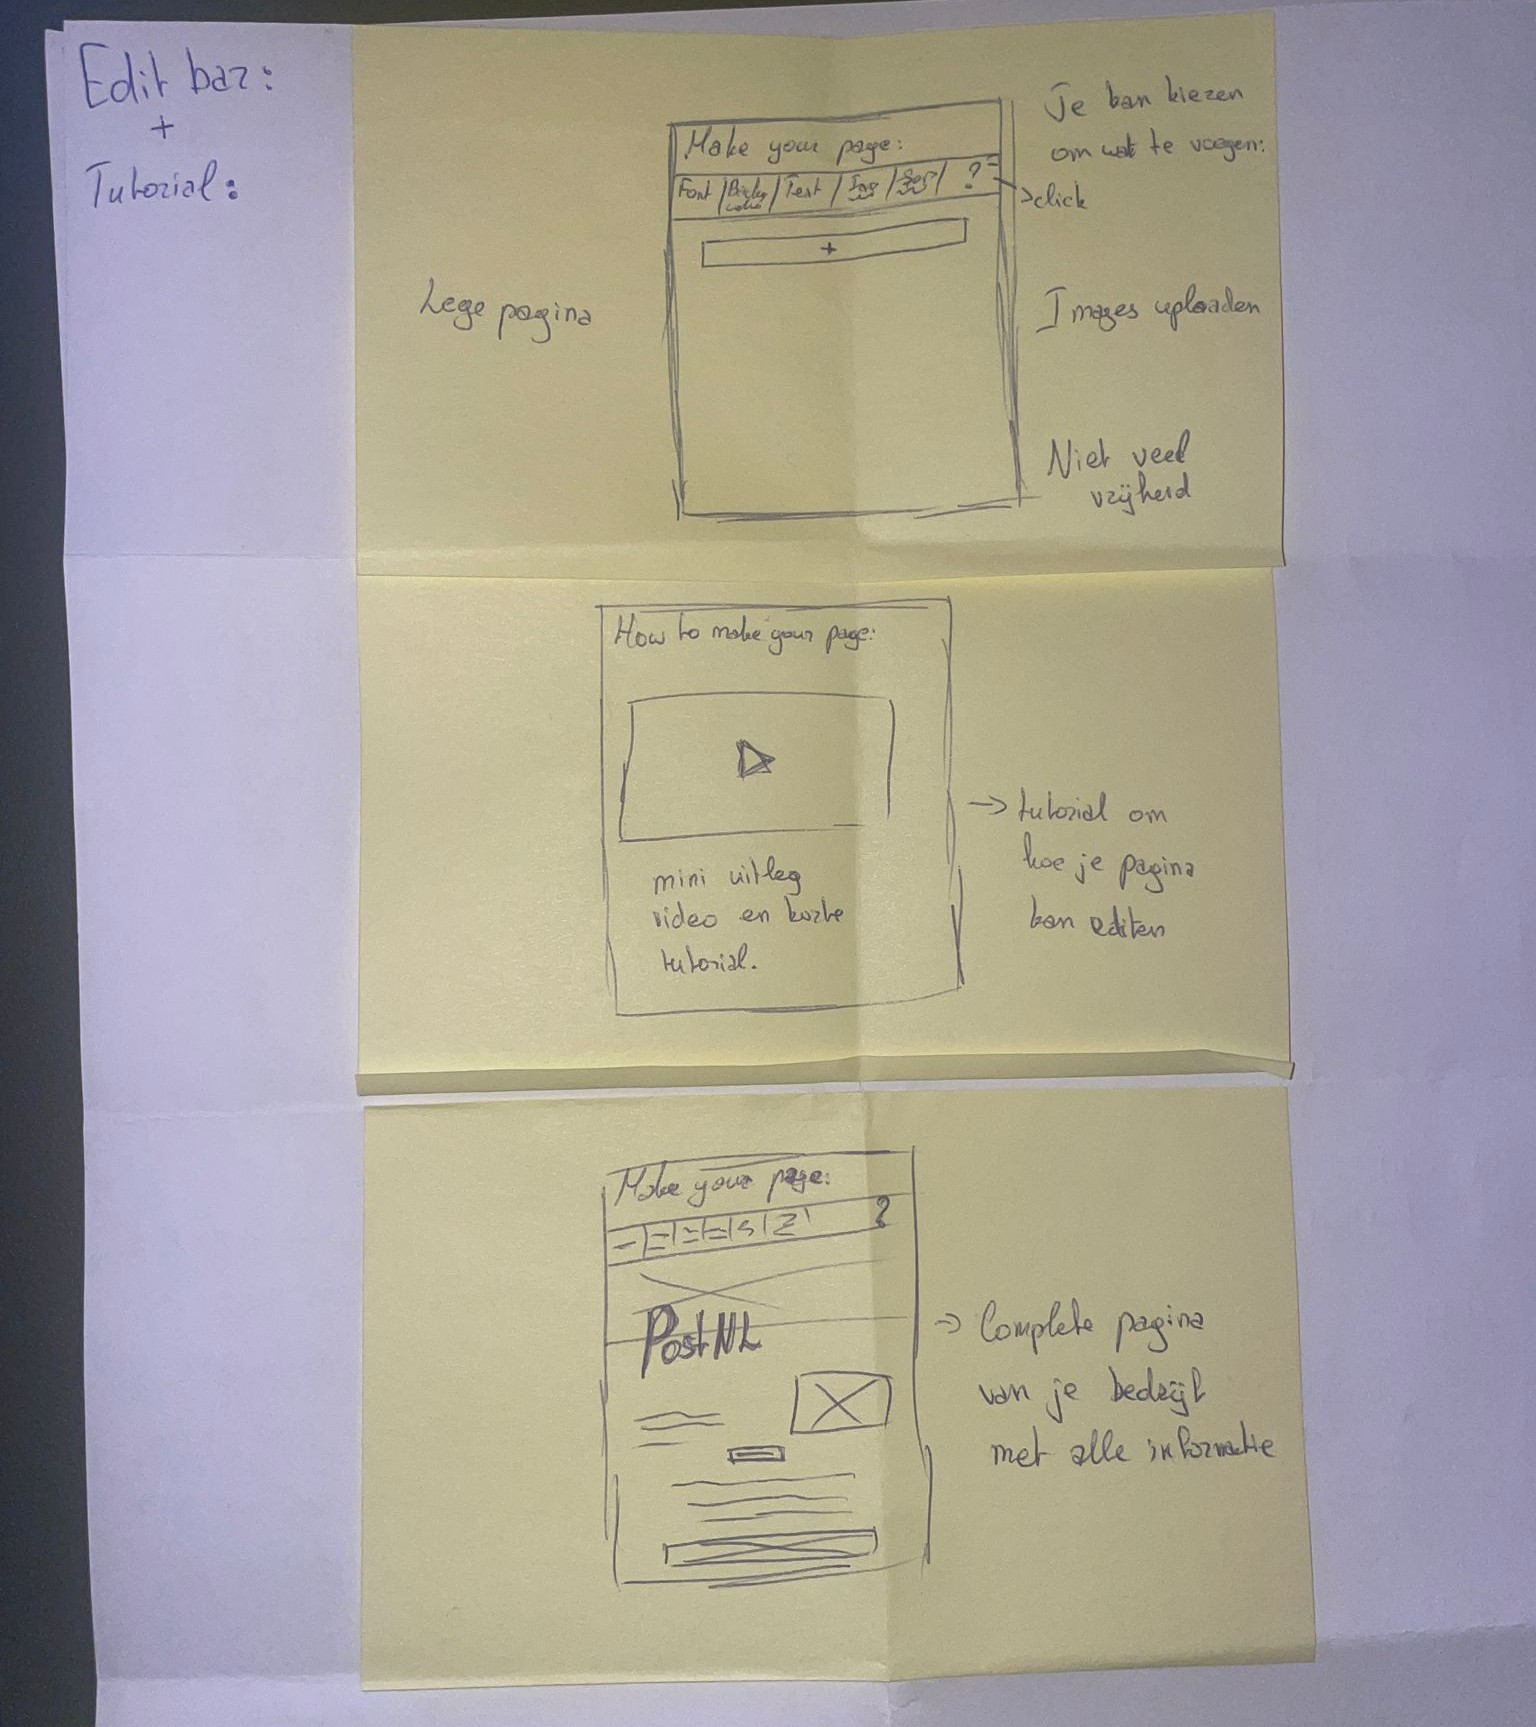 Edit bar:
+
Tutorial:
Make your page:
Font | | Text | | | ?
+
Lege pagina
Je kan kiezen
om wat te voegen:
click
Images uploaden
Niet veel
vrijheid
How to make your page:
mini uitleg
video en korte
tutorial.
→ tutorial om
hoe je pagina
kan editen
Make your page:
?
PostNL
→ Complete pagina
van je bedrijf
met alle informatie